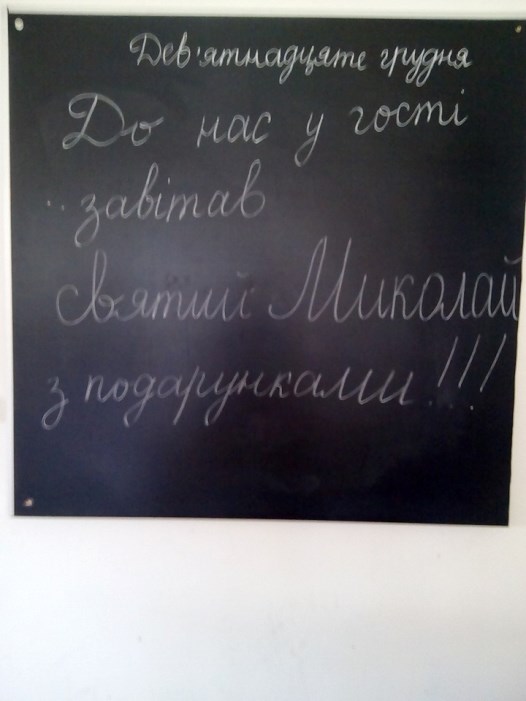 Дев'ятнадцяте грудня
До нас у гості
завітав
Святий Миколай
з подарунками!!!